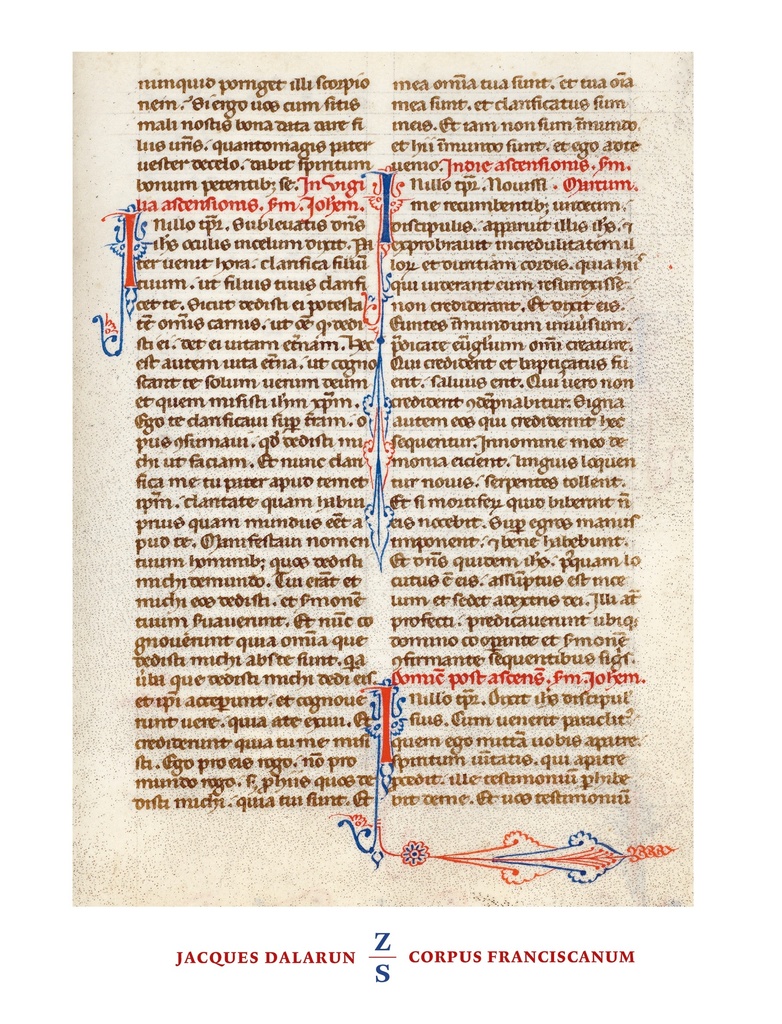 nunquid porriget illi scorpio
nem. Si ergo uos cum sitis
mali nostis bona data dare fi
liis ur̃is. quantomagis pater
uester decelo. dabit spiritum
bonum petentib; se. In uigi
lia ascensionis. s̄m. Joh̄em.
In illo tp̄r. Subleuatis dn̄s
ih̄s oculis incelum dixit. Pa
ter uenit hora. clarifica filiū
tuum. ut filius tuus clarifi
cet te. Sicut dedisti ei potesta
tē omnis carnis. ut oē q̄ dedi
sti ei. det ei uitam et̄nam. Hec
est autem uita et̄na. ut cogno
scant te solum uerum deum
et quem misisti ih̄m xp̄m.
Ego te clarificaui sup̄ t̄ram. o
pus ꝯsumaui. qd̄ dedisti mi
chi ut faciam. Et nunc clari
fica me tu pater apud temet
ip̄m. claritate quam habui
prius quam mundus eēt a
pud te. Manifestaui nomen
tuum hominib; quos dedisti
michi demundo. Tui erāt et
michi eos dedisti. et s̄monē
tuum s̄uauerunt. Et nūc co
gnouerunt quia om̄ia que
dedisti michi abs te sunt. q̄a
ūba que dedisti michi dedi eis.
et ip̄i acceperunt. et cognoue
runt uere. quia a te exiui. Et
crediderunt quia tu me misi
sti. Ego pro eis rogo. nō pro
mundo rogo. s; p̄ hiis quos de
disti michi. quia tui sunt. Et
mea om̄ia tua sunt. et tua oīa
mea sunt. et clarificatus sum
ineis. Et iam non sum ī mundo.
et hii ī mundo sunt. et ego adte
uenio. In die ascensionis. s̄m.
In illo tp̄r. Nouissi. Marcum.
me recumbentib; undecim.
discipulis. apparuit illis ih̄s. ⁊
exprobrauit incredulitatem il
lor̄ et duritiam cordis. quia hiis
qui uiderant eum resurrexisse
non crediderant. Et dixit eis.
Euntes ī mundum uniu̇sum.
p̄dicate eu̅glium omni creature.
Qui crediderit et baptiçatus fu
erit. saluus erit. Qui uero non
crediderit ꝯdēpnabitur. Signa
autem eos qui crediderint hec
sequentur. Innomine meo de
monia eicient. linguis loquen
tur nouis. serpentes tollent.
Et si mortifer̄ quid biberint n̄
eis nocebit. Sup̄ egros manus
imponent. ⁊ bene habebunt.
Et dn̄s quidem ih̄s. p̄quam lo
cutus ē eis. assūptus est ince
lum et sedet adextris dei. Illi aū
profecti. predicauerunt ubiq;
domino coop̄ante et s̄monē
ꝯfirmante sequentibus sigs̄.
Domic̄ post ascens̄. s̄m. Joh̄em.
In illo tp̄r. Dixit ih̄s discipul
suis. Cum uenerit paraclit᷒
quem ego mittā uobis apatre.
spiritum uītatis. qui apatre
p̄cedit. ille testimoniū p̄hibe
bit deme. Et uos testimoniū
JACQUES DALARUN Z S CORPUS FRANCISCANUM